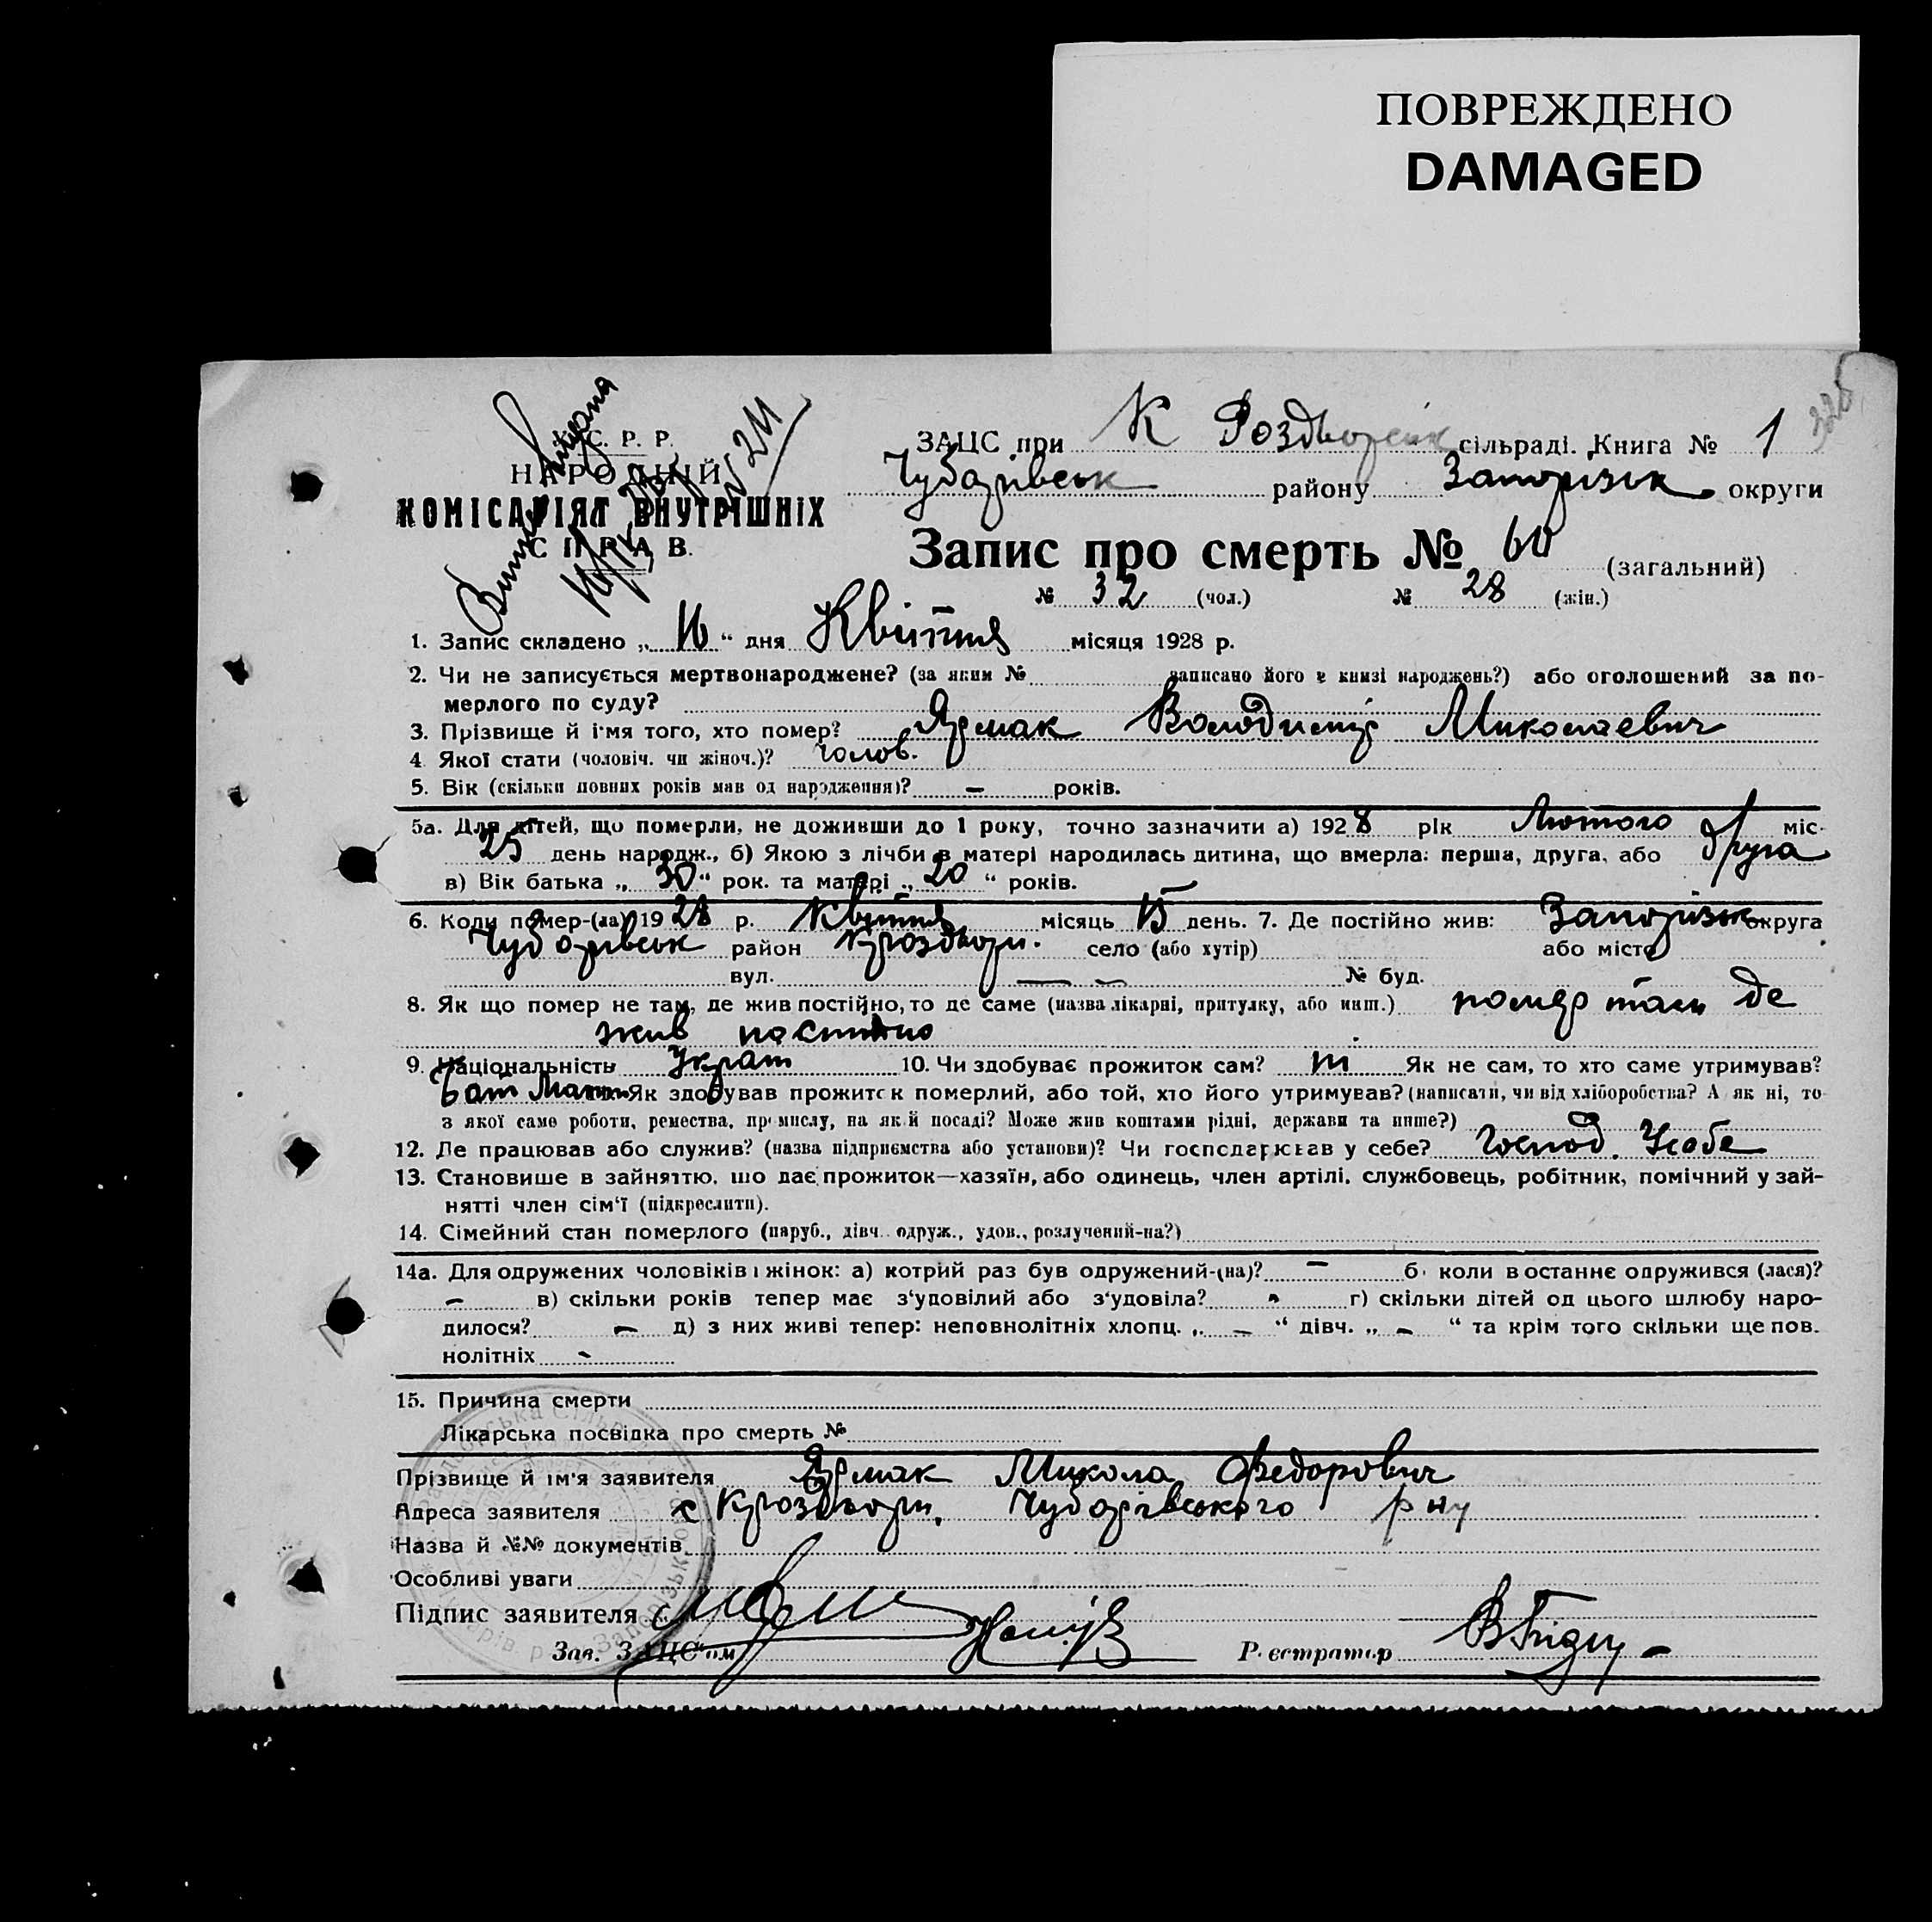 ПОВРЕЖДЕНО
DAMAGED
У. С. Р. Р.
НАРОДНІЙ
КОМІСАРІЯТ ВНУТРІШНІХ
СПРАВ.
№ 211
ЗАЦС при К Роздворськ сільраді. Книга № 1
Чубарівськ району Запорізьк округи
Запис про смерть № 60 (загальний)
№ 32 (чол.) № 28 (жін.)
1. Запис складено „16“ дня Квітня місяця 1928 р.
2. Чи не записується мертвонароджене? (за яким № записано його в книзі народжень?) або оголошений за по-
мерлого по суду?
3. Прізвище й ім'я того, хто помер? Ярмак Володимір Миколаевич
4 Якої стати (чоловіч. чи жіноч.)? Чолов.
5. Вік (скільки повних років мав од народження)? – років.
5а. Для дітей, що померли, не доживши до 1 року, точно зазначити а) 1928 рік Лютого міс.
25 день народж., б) Якою з лічби в матері народилась дитина, що вмерла: перша, друга, або друга
в) Вік батька „30“ рок. та матері „20“ років.
6. Коли помер-(ла) 1928 р. Квітня місяць 15 день. 7. Де постійно жив: Запорізьк округа
Чубарівськ район Кроздвори. село (або хутір) або місто
вул. — — № буд.
8. Як що помер не там, де жив постійно, то де саме (назва лікарні, притулку, або инш.) помер там де
жив постійно
9. Національність Украт 10. Чи здобуває прожиток сам? ні Як не сам, то хто саме утримував?
Бат Мати Як здобував прожиток померлий, або той, хто його утримував? (написати, чи від хліборобства? А як ні, то
з якої саме роботи, ремества, промислу, на якій посаді? Може жив коштами рідні, держави та инше?)
12. Де працював або служив? (назва підприємства або установи)? Чи господарював у себе? Господ. Усобе
13. Становише в зайняттю, що дає прожиток—хазяїн, або одинець, член артілі, службовець, робітник, помічний у зай-
нятті член сім'ї (підкреслити).
14. Сімейний стан померлого (паруб., дівч. одруж., удов., розлучений-на?)
14а. Для одружених чоловіків і жінок: а) котрий раз був одружений-(на)? – б) коли востаннє одружився (лася)?
– в) скільки років тепер має з'удовілий або з'удовіла? – г) скільки дітей од цього шлюбу наро-
дилося? – д) з них живі тепер: неповнолітніх хлопц. „ – “ дівч. „ – “ та крім того скільки ще пов.
нолітніх –
15. Причина смерти
Лікарська посвідка про смерть №
Прізвище й ім'я заявителя Ярмак Микола Федорович
Адреса заявителя с Кроздвори, Чубарівського р ну
Назва й №№ документів
Особливі уваги
Підпис заявителя
Зав. ЗАЦС'ом Реєстратор